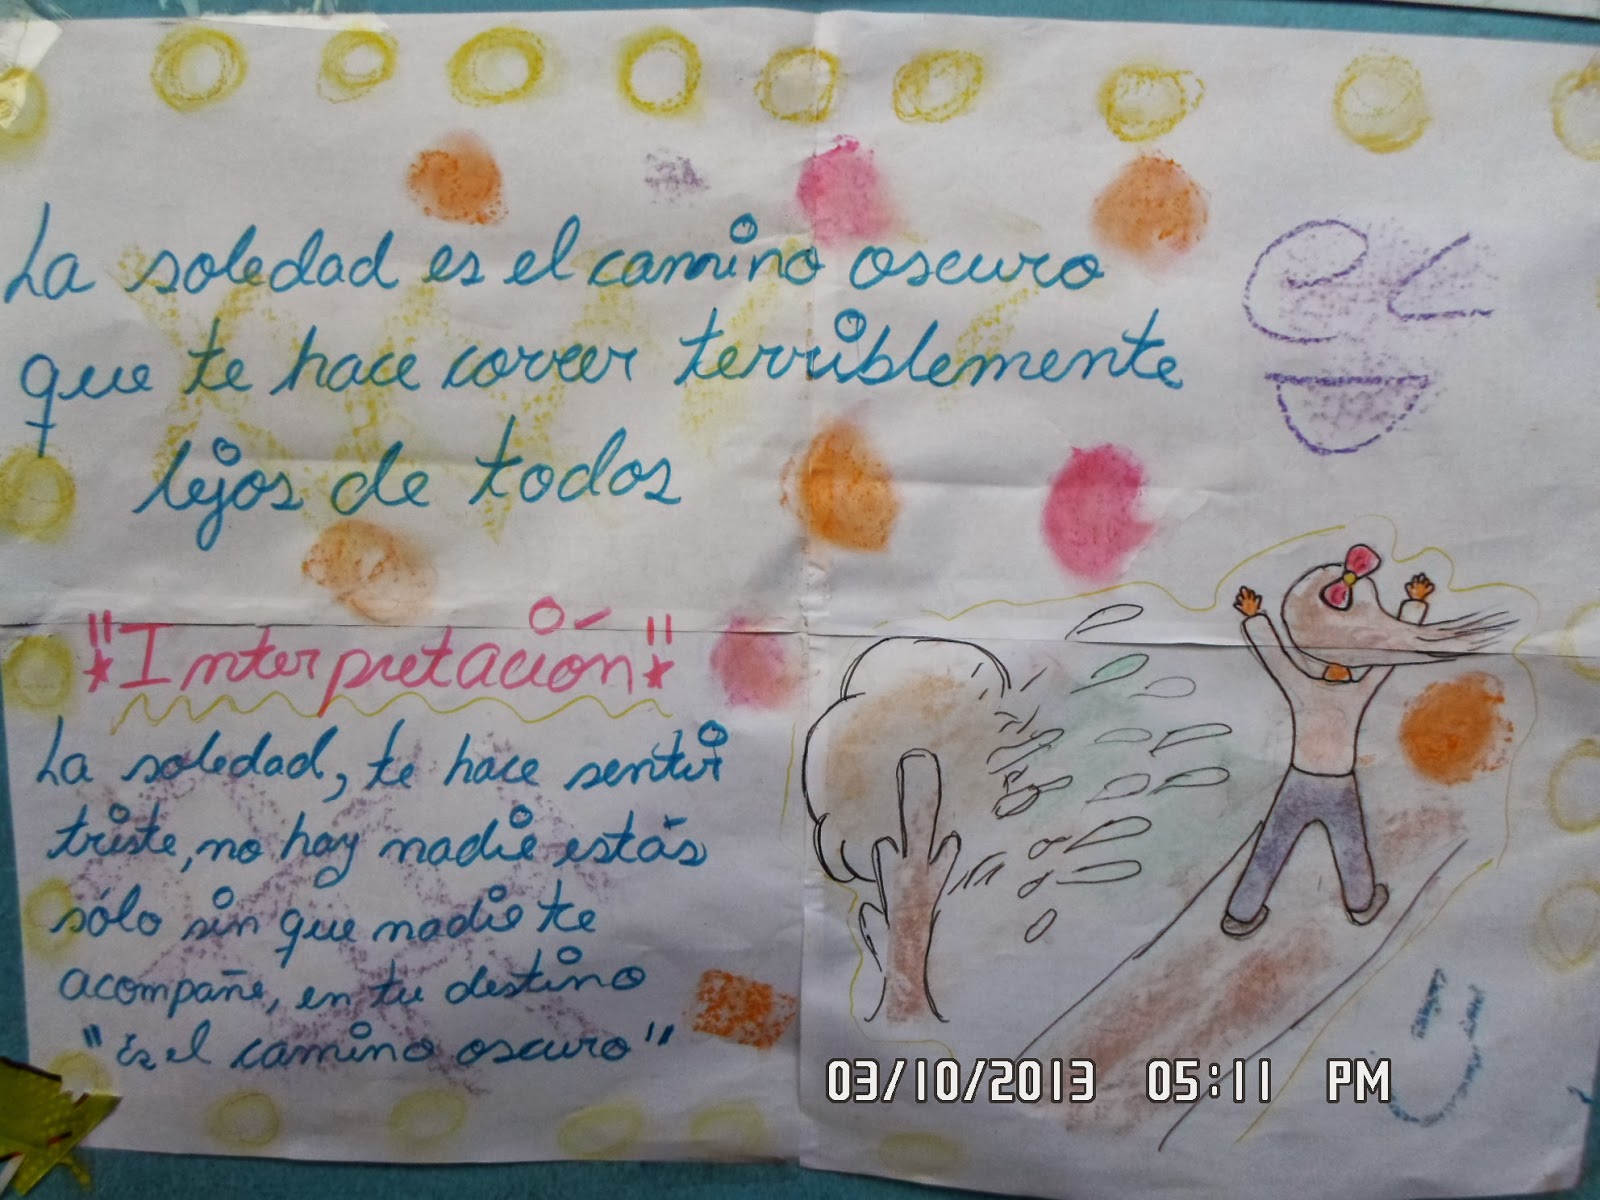 La soledad es el camino oscuro
que te hace correr terriblemente
lejos de todos
"Interpretación"
La soledad, te hace sentir
triste, no hay nadie estás
sólo sin que nadie te
acompañe, en tu destino
"es el camino oscuro"
03/10/2013 05:11 PM